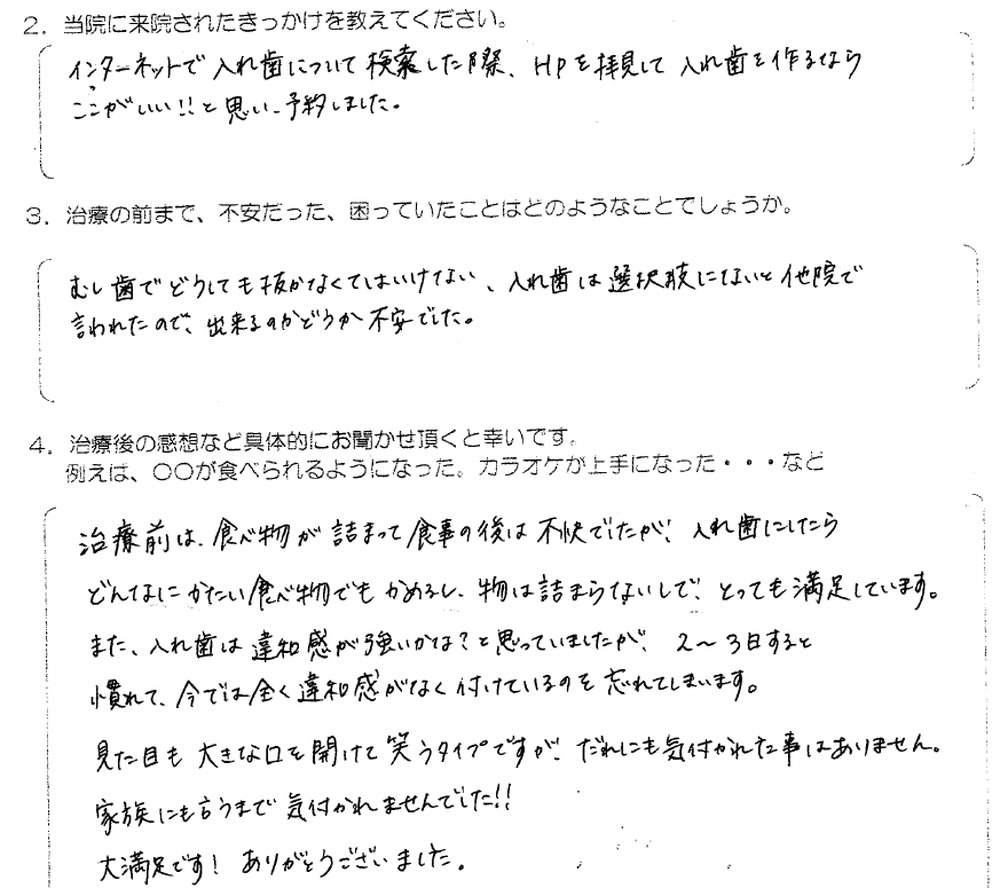 2．当院に来院されたきっかけを教えてください。
インターネットで入れ歯について検索した際、HPを拝見して入れ歯を作るなら
ここがいい!!と思い、予約しました。
3．治療の前まで、不安だった、困っていたことはどのようなことでしょうか。
むし歯でどうしても抜かなくてはいけない、入れ歯は選択肢にないと他院で
言われたので、出来るのかどうか不安でした。
4．治療後の感想など具体的にお聞かせ頂くと幸いです。
例えば、〇〇が食べられるようになった。カラオケが上手になった・・・など
治療前は、食べ物が詰まって食事の後は不快でしたが、入れ歯にしたら
どんなにかたい食べ物でもかめるし、物は詰まらないしで、とっても満足しています。
また、入れ歯は違和感が強いかな？と思っていましたが、2〜3日すると
慣れて、今では全く違和感がなく付けているのを忘れてしまいます。
見た目も大きな口を開けて笑うタイプですが、だれにも気付かれた事はありません。
家族にも言うまで気付かれませんでした!!
大満足です！ありがとうございました。